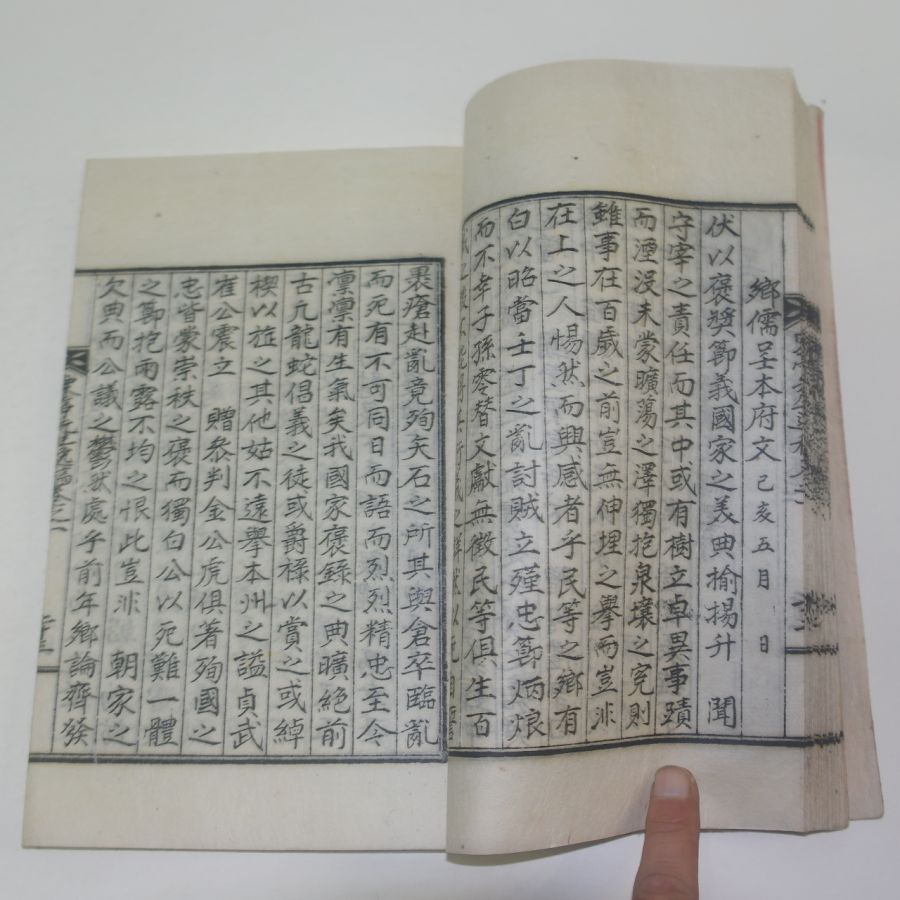 鄕儒呈本府文 己亥五月 日
伏以褒奬節義國家之美典揄揚升 聞
守宰之責任而其中或有樹立卓異事蹟
而湮沒未蒙曠蕩之澤獨抱泉壤之寃則
雖事在百歲之前豈無伸埋之擧而豈非
在上之人惕然而興感者乎民等之鄕有
白以昭當壬丁之亂討賊立殣忠節炳烺
而不幸子孫零替文獻無徵民等俱生百
裹瘡赴亂竟殉矢石之所其與倉卒臨亂
而死有不可同日而語而烈烈精忠至今
凛凛有生氣矣我國家褒錄之典曠絕前
古凢龍蛇倡義之徒或爵祿以賞之或綽
楔以旌之其他姑不遠擧本州之謚貞武
崔公震立 贈叅判金公虎俱著殉國之
忠皆蒙崇秩之褒而獨白公以死難一體
之節抱雨露不均之恨此豈非 朝家之
欠典而公議之鬱然處乎前年鄕論齊發